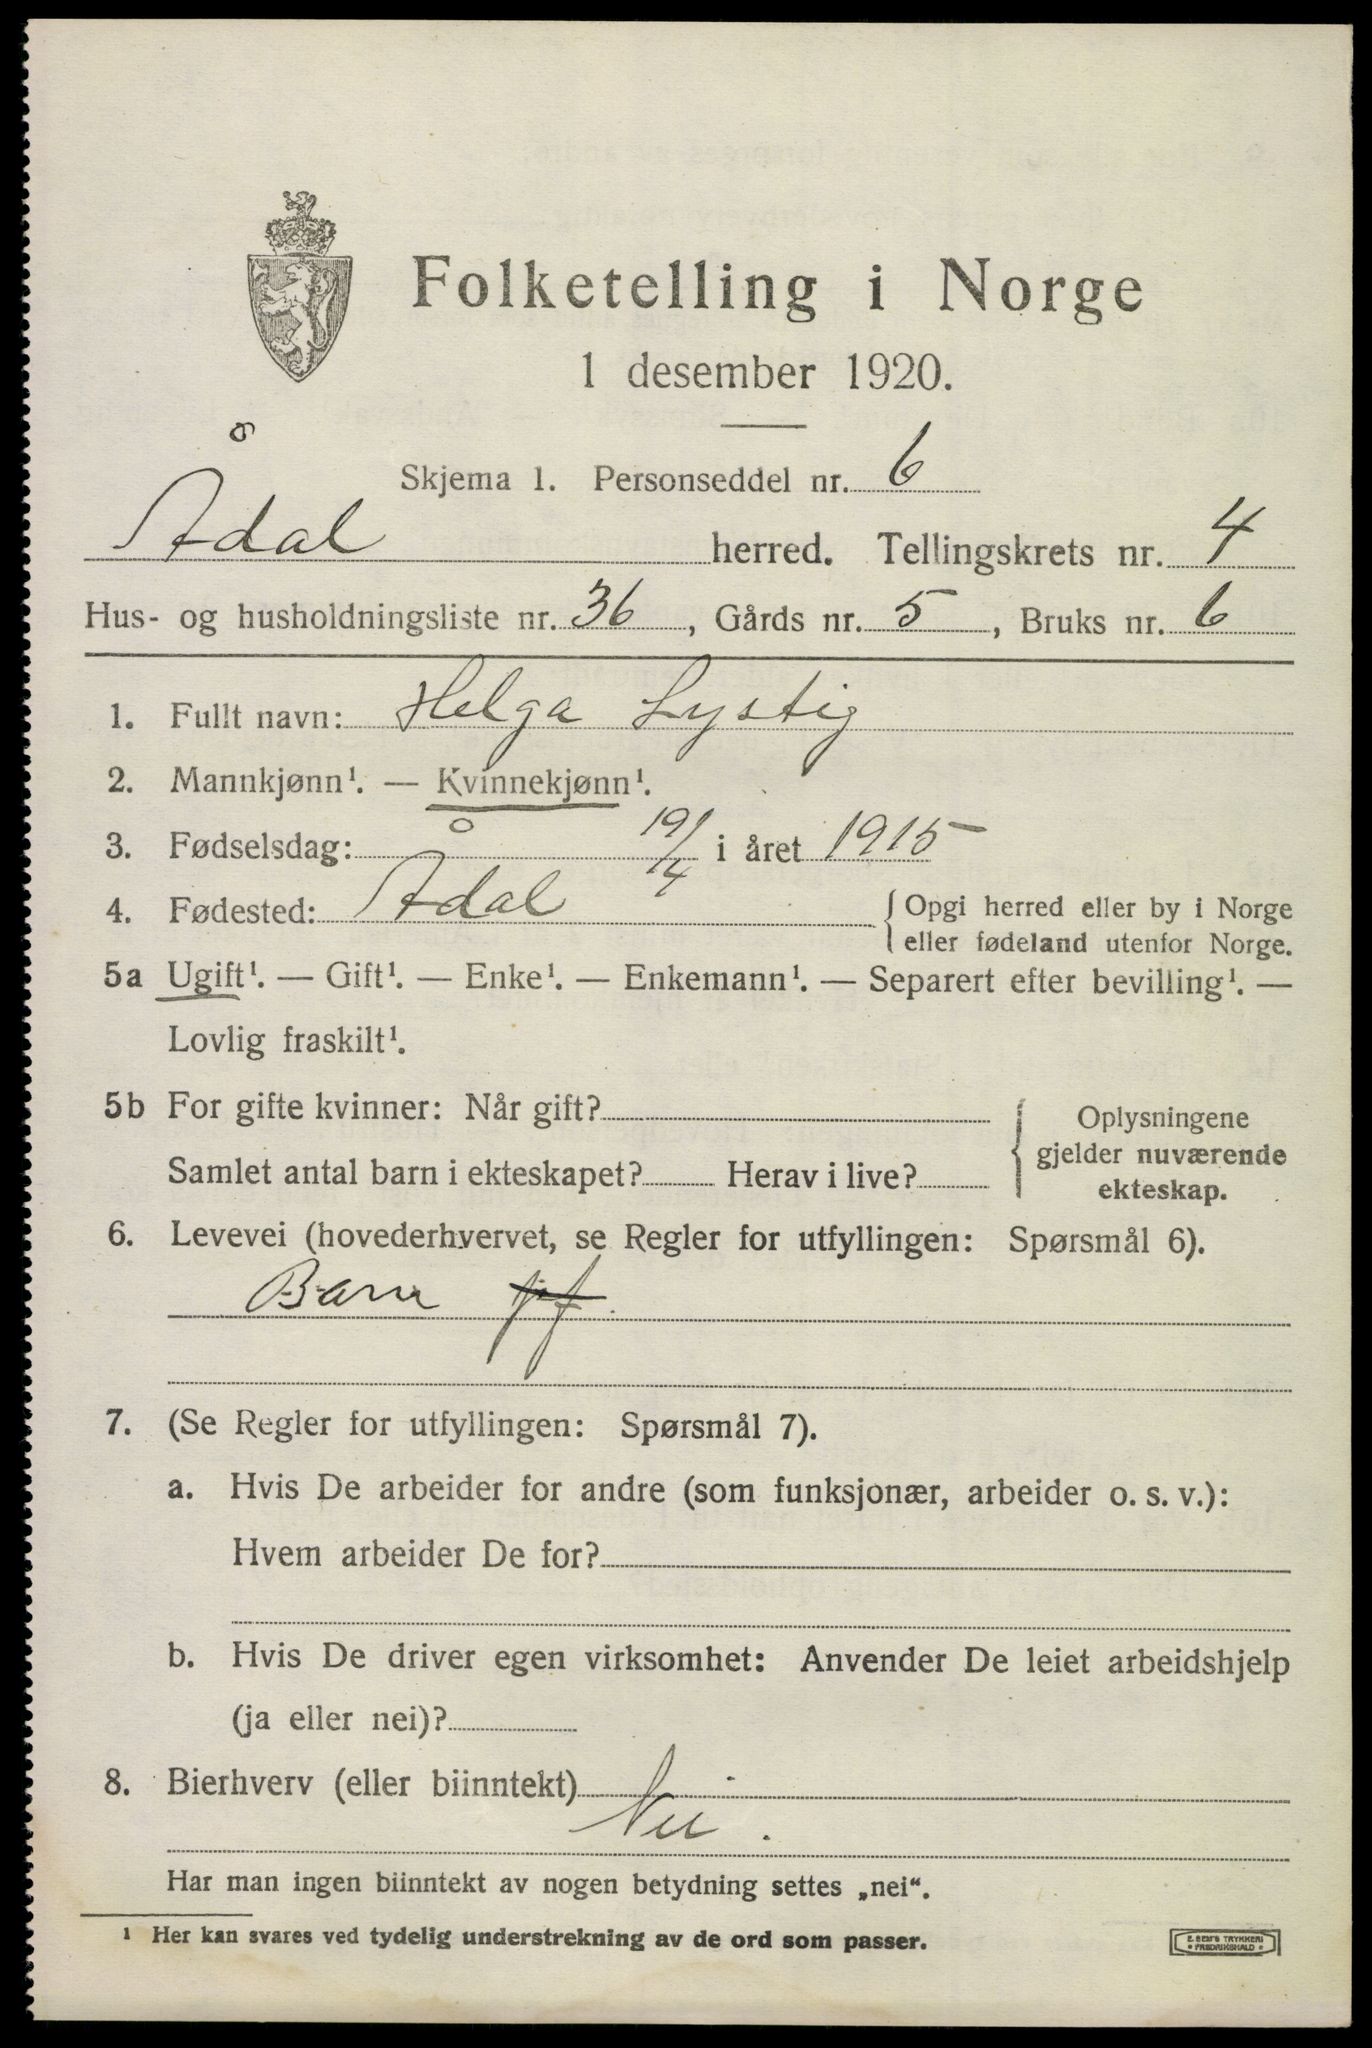 Folketelling i Norge
1 desember 1920.
Skjema 1. Personseddel nr. 6
Ådal herred. Tellingskrets nr. 4
Hus- og husholdningsliste nr. 36, Gårds nr. 5, Bruks nr. 6
1. Fullt navn: Helga Lystig
2. Mannkjønn¹. — Kvinnekjønn¹.
3. Fødselsdag: 19/4 i året 1915
4. Fødested: Ådal { Opgi herred eller by i Norge
eller fødeland utenfor Norge.
5a Ugift¹. — Gift¹. — Enke¹. — Enkemann¹. — Separert efter bevilling¹. —
Lovlig fraskilt¹.
5b For gifte kvinner: Når gift?
Samlet antal barn i ekteskapet? Herav i live?
{ Oplysningene
gjelder nuværende
ekteskap.
6. Levevei (hovederhvervet, se Regler for utfyllingen: Spørsmål 6).
Barn
7. (Se Regler for utfyllingen: Spørsmål 7).
a. Hvis De arbeider for andre (som funksjonær, arbeider o. s. v.):
Hvem arbeider De for?
b. Hvis De driver egen virksomhet: Anvender De leiet arbeidshjelp
(ja eller nei)?
8. Bierhverv (eller biinntekt)
Nei.
Har man ingen biinntekt av nogen betydning settes „nei“.
¹ Her kan svares ved tydelig understrekning av de ord som passer.
E. SEM'S TRYKKERI
• FREDRIKSHALD •